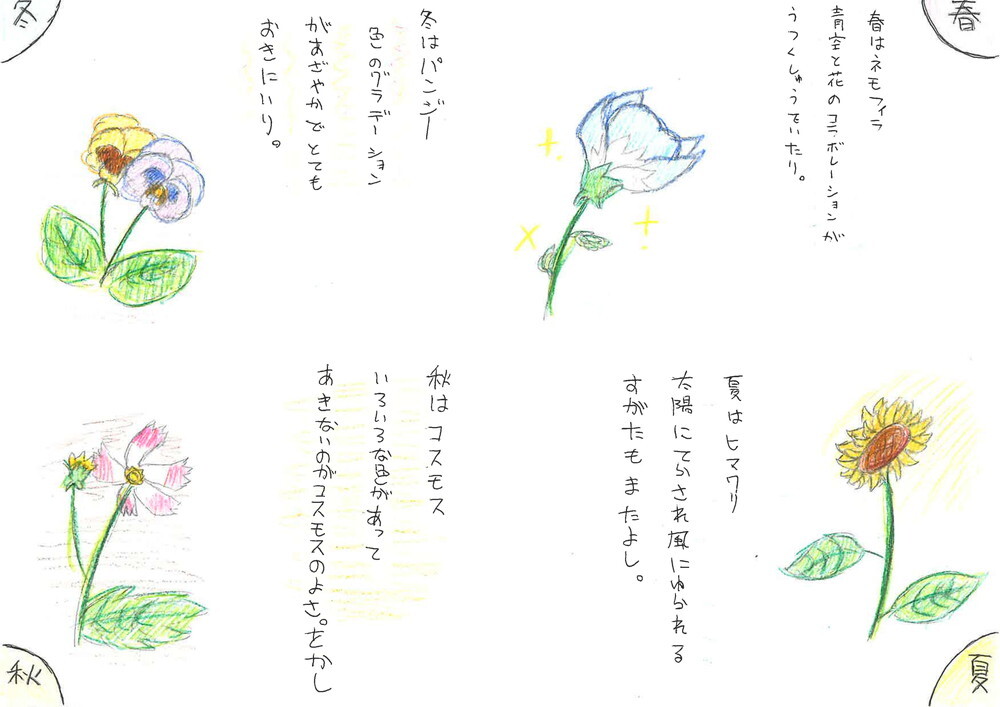 春
春はネモフィラ
青空と花のコラボレーションが
うつくしゅうていたり。
夏
夏はヒマワリ
太陽にてらされ風にゆられる
すがたもまたよし。
秋
秋はコスモス
いろいろな色があって
あきないのがコスモスのよさ。をかし
冬
冬はパンジー
色のグラデーション
があざやかでとても
おきにいり。